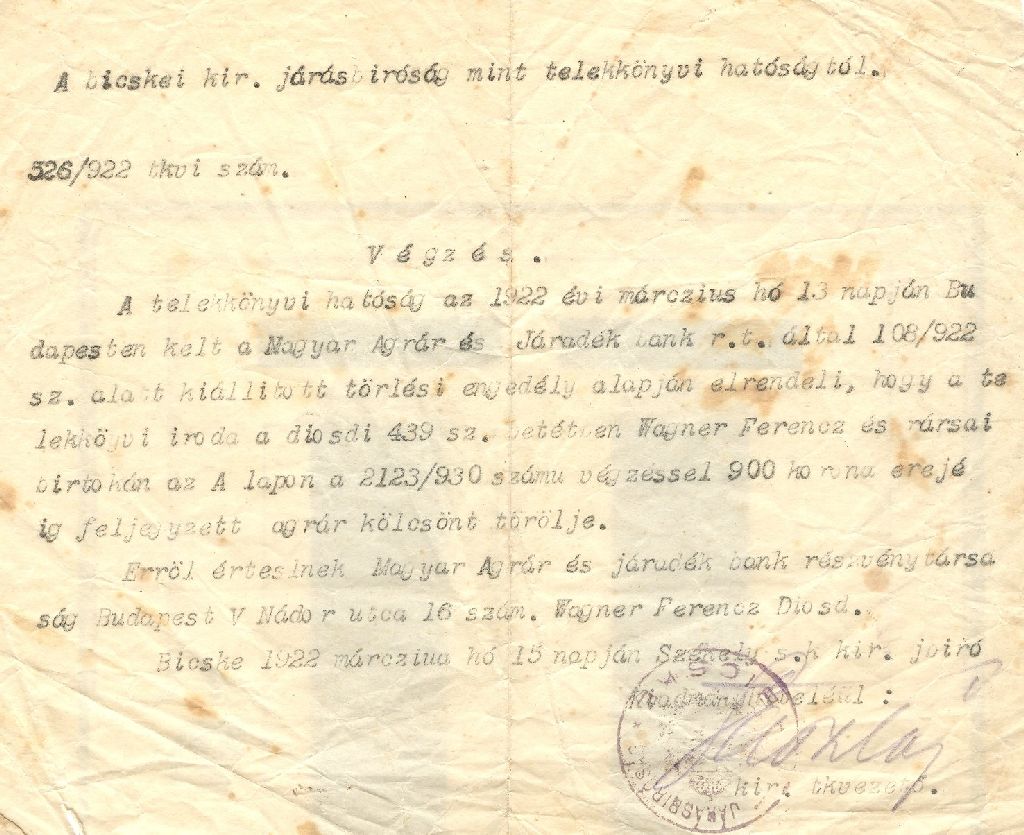 A bicskei kir. járásbiróság mint telekkönyvi hatóságtól.
526/922 tkvi szám.
V é g z é s .
A telekkönyvi hatóság az 1922 évi márczius hó 13 napján Bu
dapesten kelt a Magyar Agrár és Járadék bank r.t. által 108/922
sz. alatt kiállitott törlési engedély alapján elrendeli, hogy a te
lekkögvi iroda a diosdi 439 sz. betétben Wagner Ferencz és rársai
birtokán az A lapon a 2123/930 számu végzéssel 900 korona erejé
ig feljegyzett agrár kölcsönt törölje.
Erröl értesInek Magyar Agrár és járadék bank részvénytársa
ság Budapest V Nádor utca 16 szám. Wagner Ferencz Diosd.
Bicske 1922 márcziua hó 15 napján Székely s.k kir. jbiró
:
kir. tkvezetö.
BICSK
JÁRÁSBIRÓSÁG